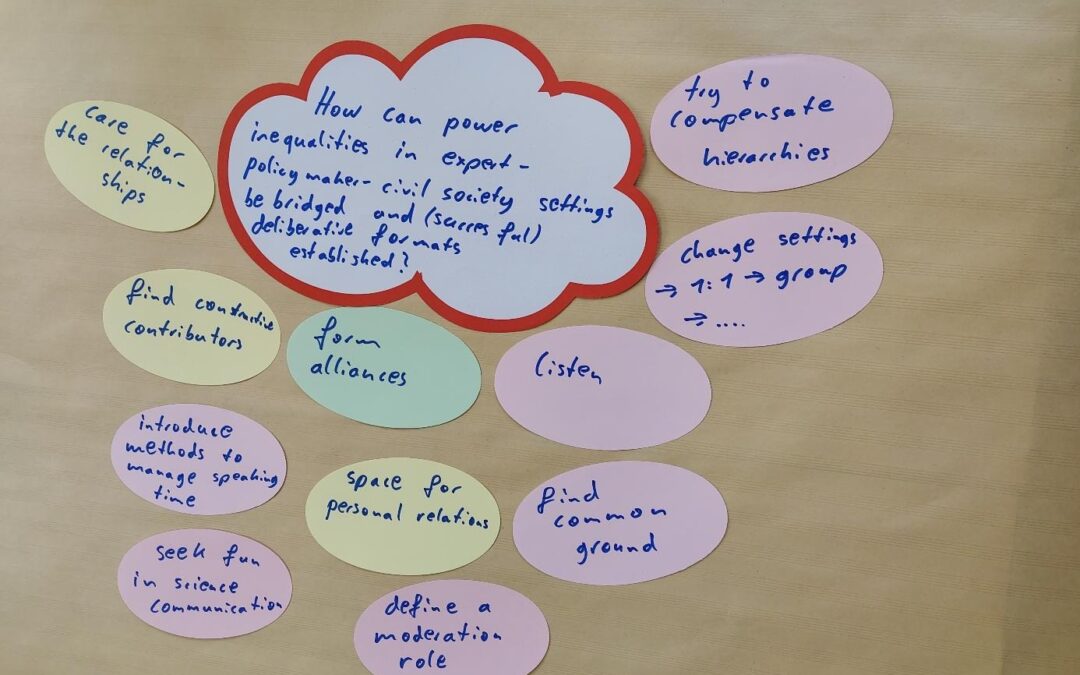 How can power
inequalities in expert-
policymaker- civil society settings
be bridged and (succesful)
deliberative formats
established?
care for
the relation-
ships
try to
compensate
hierarchies
change settings
→ 1:1 → group
→ ....
find constructive
contributors
form
alliances
listen
introduce
methods to
manage speaking
time
space for
personal relations
find
common
ground
seek fun
in science
communication
define a
moderation
role